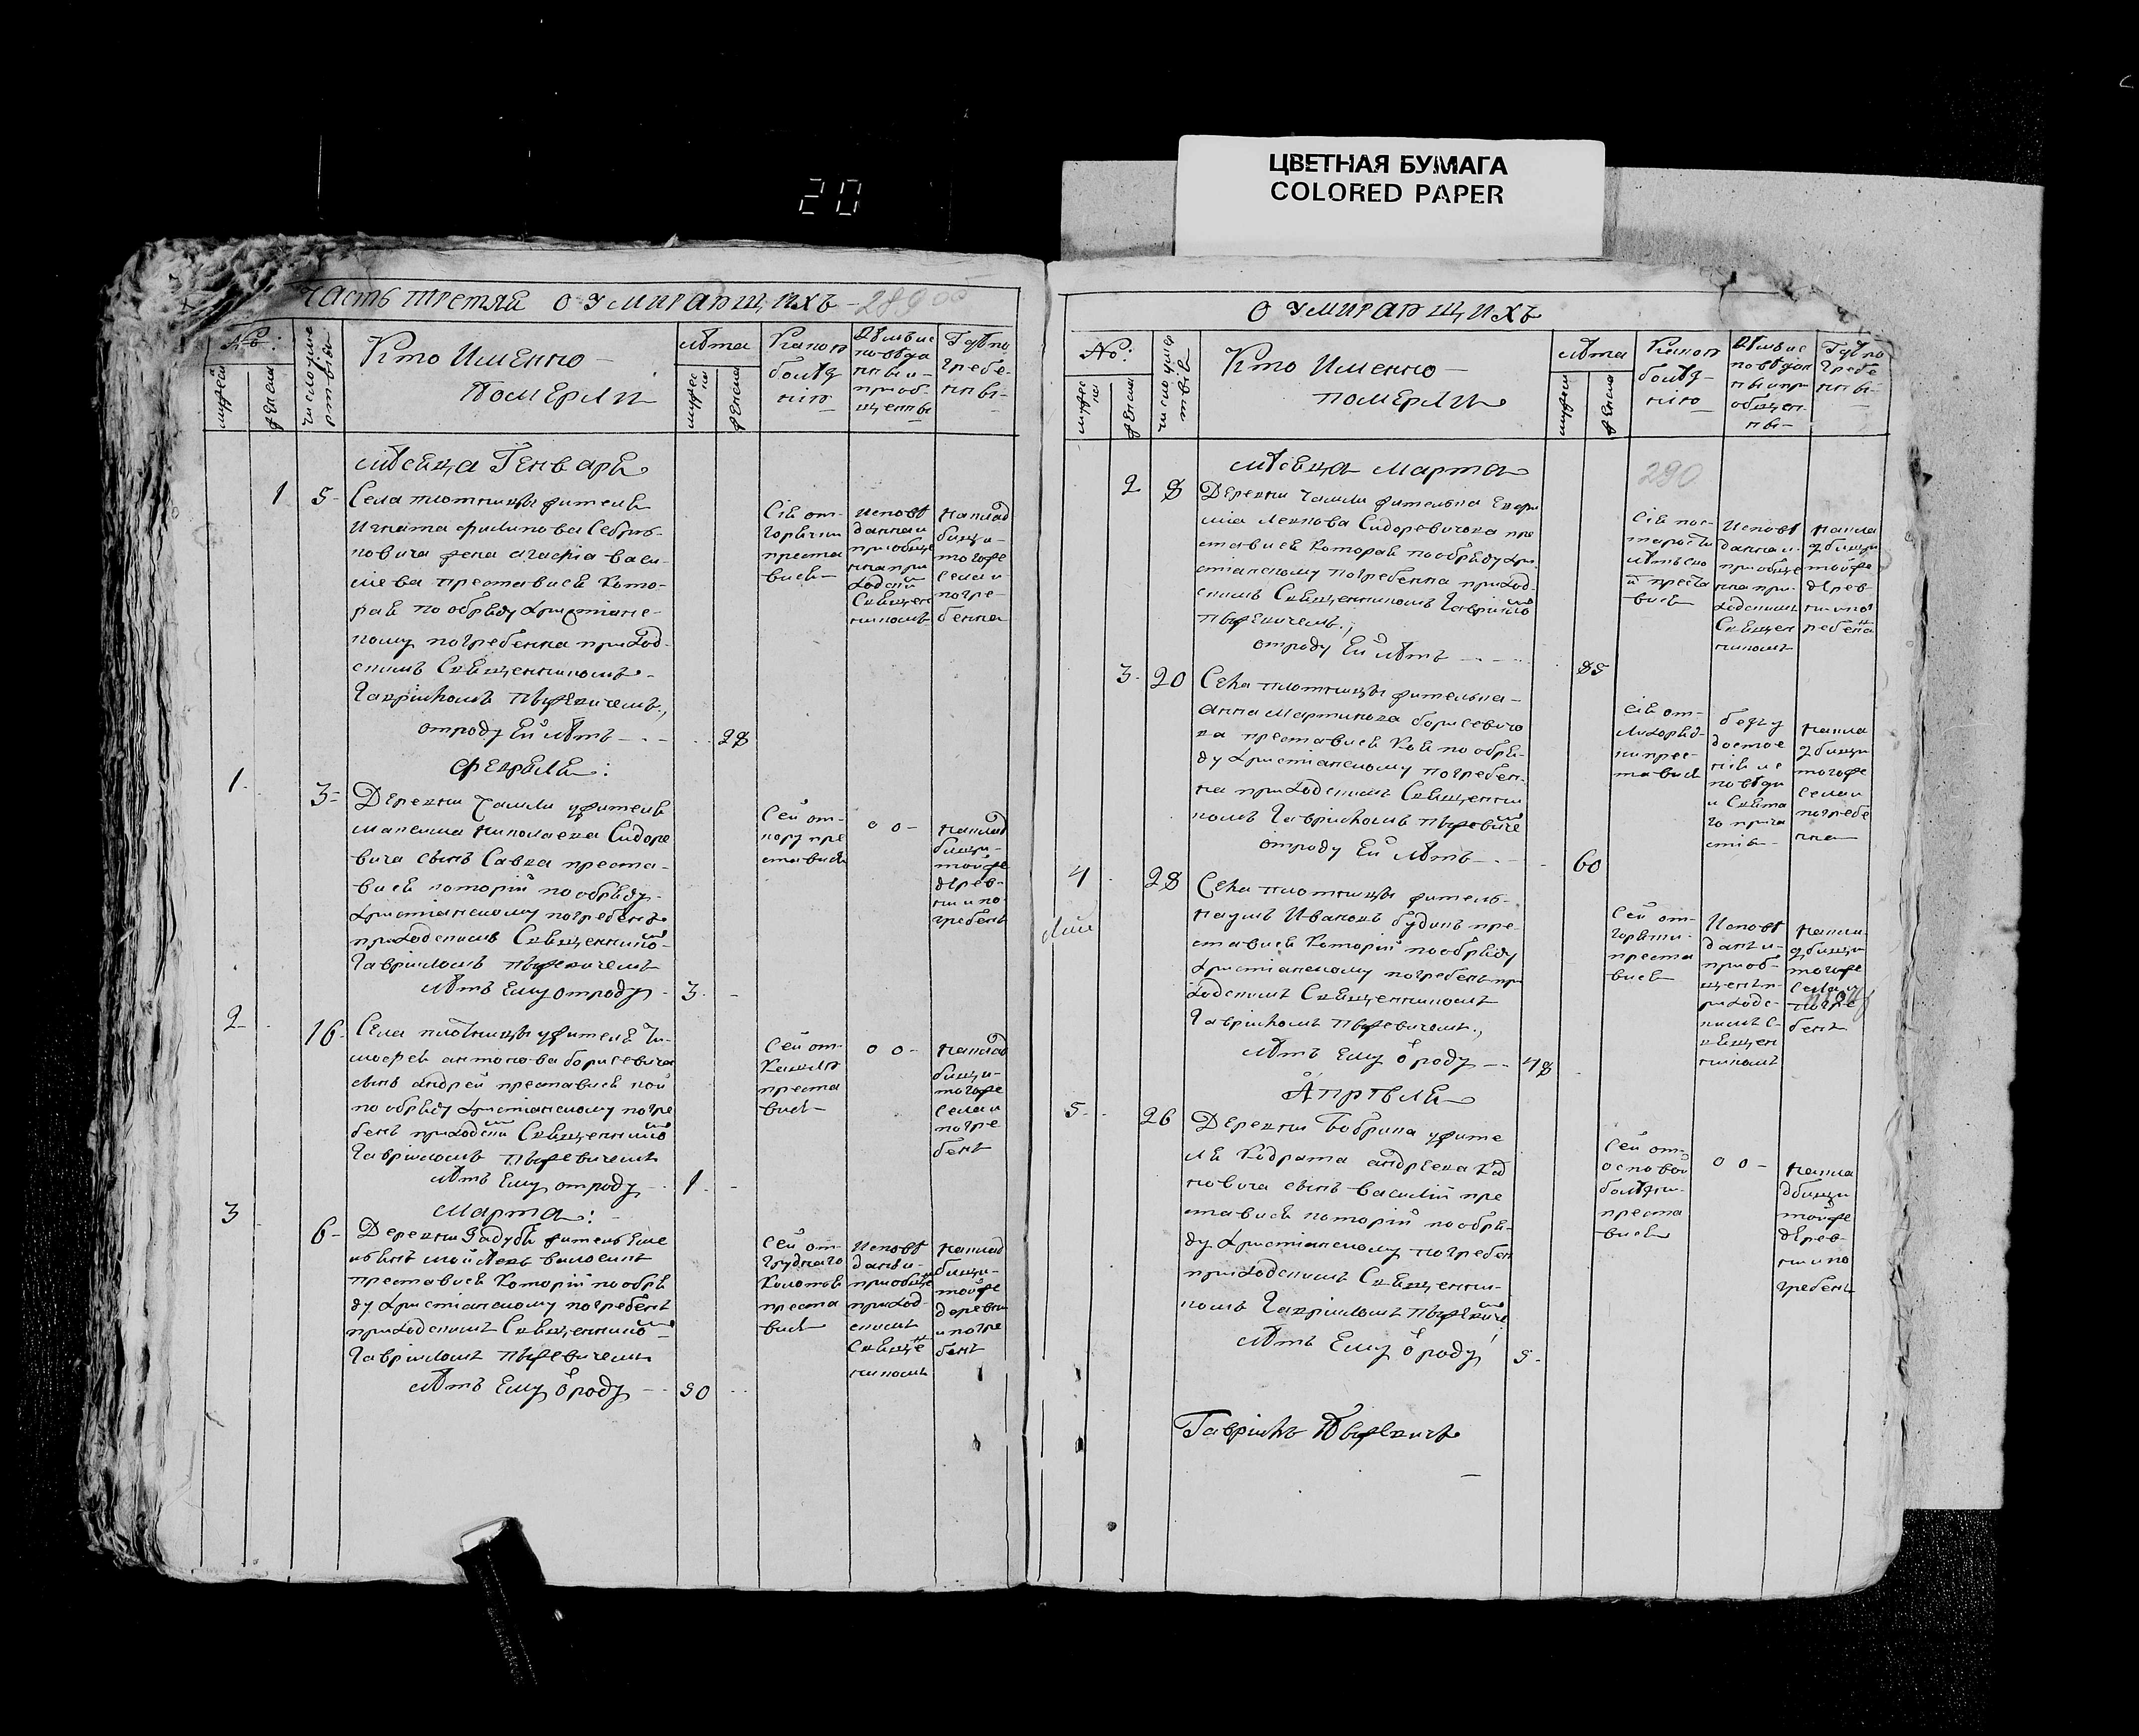 ЦВЕТНАЯ БУМАГА
COLORED PAPER
20
Часть третяя о умирающихъ
289 об
№:
мужей
женска
число умертвія
Кто Именно
Померли
лѣта
мужеска
женска
Какою
болѣз
нію
Кѣмъ ис
повѣда
ны и
приоб
щенны
Гдѣ по
гребе
ны
мѣсеца Генваря
1
5
Села плотницы жителя
Игната филипова Себрю
новича жена агафіа васи
лева преставися кото
рая по обряду христіанс
кому погребенна приход
скимъ Священникомъ
Гавріиломъ Пыжевичемъ
отроду Ей лѣтъ
28
Сія от
горячки
преста
вися
Исповѣ
данна и
приобще
нна при
ходским
Священ
никомъ
на клад
бищи
тогоже
села и
погре
бенна
февраля:
1
3
Деревни жителя
максима николаева Сидоре
вича сынъ Савка преста
вися которій по обряду
христіанскому погребенъ
приходскимъ Священником
Гавріиломъ пыжевичемъ
лѣтъ Ему отроду
3
Сей от
кору пре
ставися
0 0
на клад
бищи
тойже
дерев
ни и по
гребенъ
2
16
Села плотницы жителя Ти
мофея антонова борисевича
сынъ андрей преставися кой
по обряду христіанскому погре
бенъ приходским Священником
Гавріиломъ пыжевичемъ
лѣтъ Ему отроду
1
Сей от
кашлю
преста
вися
0 0
на клад
бищи
тогоже
села и
погре
бенъ
Марта:
3
6
преставися которій по обря
ду христіанскому погребенъ
приходскимъ Священником
Гавріиломъ пыжевичемъ
лѣтъ Ему отроду
50
Сей от
груднаго
колотья
преста
вися
Исповѣ
данъ и
приобще
приход
скимъ
Священ
никомъ
на клад
бищи
тойже
деревни
и погре
бенъ
О умирающихъ
№:
мужес
ка
женска
число умер
твія
Кто Именно
померли
лѣта
мужеска
женска
Какою
болѣз
нію
Кѣмъ ис
повѣдан
ны и при
общен
ны
Гдѣ по
гребе
ны
290
мѣсеца Марта
2
8
леинова Сидоревичова пре
ставися которая по обряду хри
стіанскому погребенна приход
скимъ Священникомъ Гавріилом
пыжевичемъ
отроду Ей лѣтъ
85
Сія пос
тарости
лѣтъ сво
й преста
вися
Исповѣ
данна и
приобще
нна при
ходскимъ
Священ
никомъ
на кла
дбищи
тойже
дерев
ни и пог
ребена
3
20
Села плотницы жителька
анна Мартинова борисевичо
ва преставися коя по обря
ду христіанскому погребен
на приходскимъ Священни
комъ Гавріиломъ пыжевиче
отроду Ей лѣтъ
60
Сія от
лихорад
ки прес
тавися
без у
достое
нія ис
повѣди
и Свята
го прича
стія
на кла
дбищи
тогоже
села и
погребе
нна
4
28
Села плотницы житель
наумъ Ивановъ будикъ пре
ставися которій по обряду
христіанскому погребенъ при
ходскимъ Священникомъ
Гавріиломъ Пыжевичемъ
лѣтъ Ему отроду
48
Сей от
горячки
преста
вися
Исповѣ
данъ и
приоб
щенъ п
риходс
кимъ С
вящен
никомъ
на кла
дбищи
тогоже
села и
погре
бенъ
Апрѣля
5
26
Деревни Бобрика жите
ля Кодрата андреева
сынъ василій пре
ставися которій по обря
ду христіанскому погребен
приходскимъ Священни
комъ Гавріиломъ пыжевиче
лѣтъ Ему отроду
5
Сей от
оспової
болѣзни
преста
вися
0 0
на кла
дбищи
тойже
дерев
ни и по
гребенъ
Гавріилъ Пыжевичъ